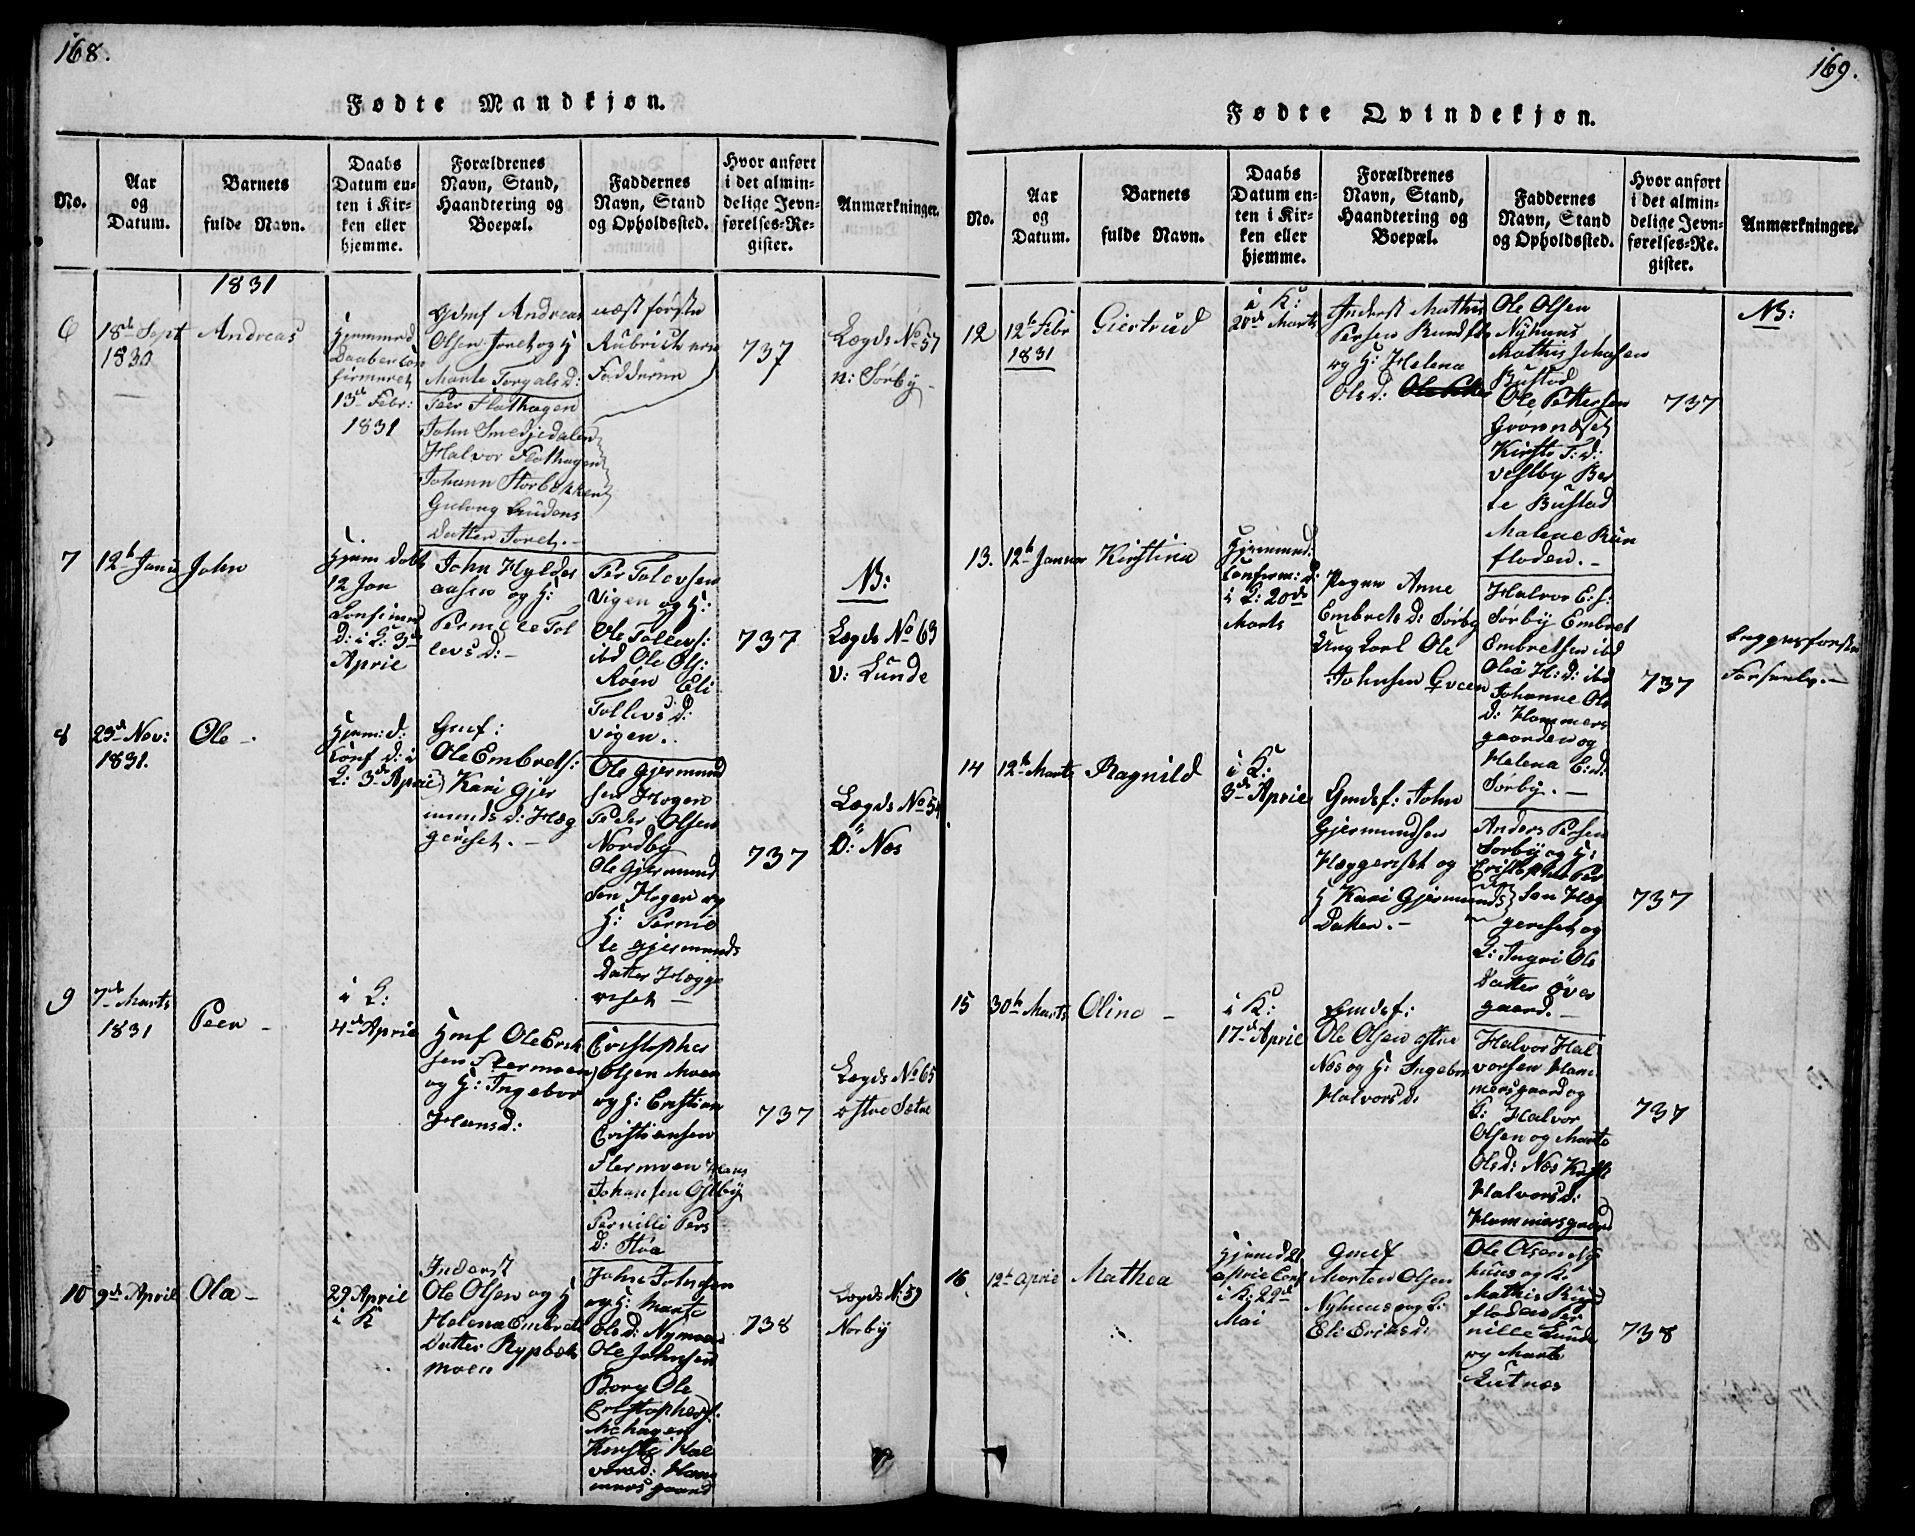 168.
Fødte Mandkjøn.
No.
Aar
og
Datum.
Barnets
fulde Navn.
Daabs
Datum en-
ten i Kir-
ken eller
hjemme.
Forældrenes
Navn, Stand,
Haandtering og
Boepæl.
Faddernes
Navn, Stand
og Opholdssted.
Hvor anført
i det almin-
delige Jevn-
førelses-Re-
gister.
Anmærkninger.
1831
6
18de Sept
1830
Andreas
Hjemmed
Daaben Con
firmeret
13de Febr:
1831
Gdmf Andreas
Olsen Joret og H
Marte Torgalsd:
Peer Flathagen
John Smedjedalen
Halvor Flathagen
Johann Storbekken
Datter Joret.
næst første
Rubrick ere
Fadderne
737
Lægds No 57
n: Sørby
7
12te Janu
John
Hjem dobt
12 Jan
D: i K: 3de
April
John Hyldes
aasen og H:
Pernille Tol
levsd:
Per Tolevsen
Vigen og H:
Ole Tollevs:
ibd Ole Ols:
Roen Eli
Tollevsd:
Vigen.
737
NB:
Lægds No 63
v: Lunde
8
23de Nov:
1831.
Ole
Hjem: d:
Conf d: i
K: 3de April
Gmf:
Ole Embrets:
Kari Gjer
mundsd: Hæg
geriset.
Ole Gjermund
sen Hogen
Peder Olsen
Nordby
Ole Gjermund
sen Hogen og
H: Pernil
le Gjermunds
Datter Hægge
riset
737
Lægds No 54
Ö: Næs
9
7de Marts
1831
Peer
i K:
4de April
Hmf Ole Erik
sen Stermoen
og H: Ingebor
Hansd:
Cristopher
Olsen Moen
og H: Cristian
Cristiansen
Stermoen Hans
Johansen Ostby
Pernille Pers
D: Støa
737
Lægds No 65
østre Sætre
10
9de April
Ola
29 April
i K
Inderst
Ole Olsen og H
Helena Embrets
Datter Rypbæk
moen
John Johnsen
og H: Marte
Olsd: Nymoen
Ole Johnsen
Borg Ole
Cristophers.
Mehagen
Kirsti Hal
vorsd: Ham
mersgaard
738
Lægds N: 59
Norby
169.
Fødte Qvindekjøn.
No.
Aar
og
Datum.
Barnets
fulde Navn.
Daabs
Datum en-
ten i Kir-
ken eller
hjemme.
Forældrenes
Navn, Stand,
Haandtering og
Boepæl.
Faddernes
Navn, Stand
og Opholdssted.
Hvor anført
i det almin-
delige Jevn-
førelses-Re-
gister.
Anmærkninger.
12
12te Febr
1831
Giertrud
i K:
20de Marts
Inderst Mathis
Persen Rundflo
og H: Helena
Olsd:
Ole Olsen
Nyhuus
Mathis Johnsen
Bustad
Ole Pettersen
Grønnæset
Kirsti T: d:
Vestby Ber
te Bustad
Malene Run
floden.
737
NB:
13.
12te Januar
Kirstina
Hjemmed:
Confirm: d:
i K: 20de
Marts
Pigen Anne
Embretsd: Sørby
Ung Karl Ole
Johnsen Qveen
Halvor E: s:
Sørby Embret
Embretsen ibd
Olia H: d: ibd
Johanne Ols
d: Hammers
gaarden og
Helena E: d:
Sørby.
737
14
12te Marts
Ragnild
i K:
3de April
Gmdsf: John
Gjermundsen
Hæggeriset og
H Kari Gjermunds
Datter.
Anders Persen
Sørby og H:
Cristopher Per
sen Hæg
geriset og
K: Ingri Ols
Datter Över
gaard.
737
15
30te Marts
Olina
i K:
17de April
Gmdsf:
Ole Olsen østre
Næs og H: Ingebor
Halvorsd:
Halvor Hal
vorsen Ham
mersgaard og
K: Halvor
Olsen og Marte
Olsd: Næs Kirsti
Halvorsd:
Hammersgaard
737
16
12te April
Mathea
Hjemd 21
April Conf
i K: 22de
Mai
Gmdf
Morten Olsen
Nyhuus og K:
Eli Eriksd:
Ole Olsen Ny
huus og K:
Mathis Rund
floden Per
nille Lunde
og Marte
Lutnæs
738